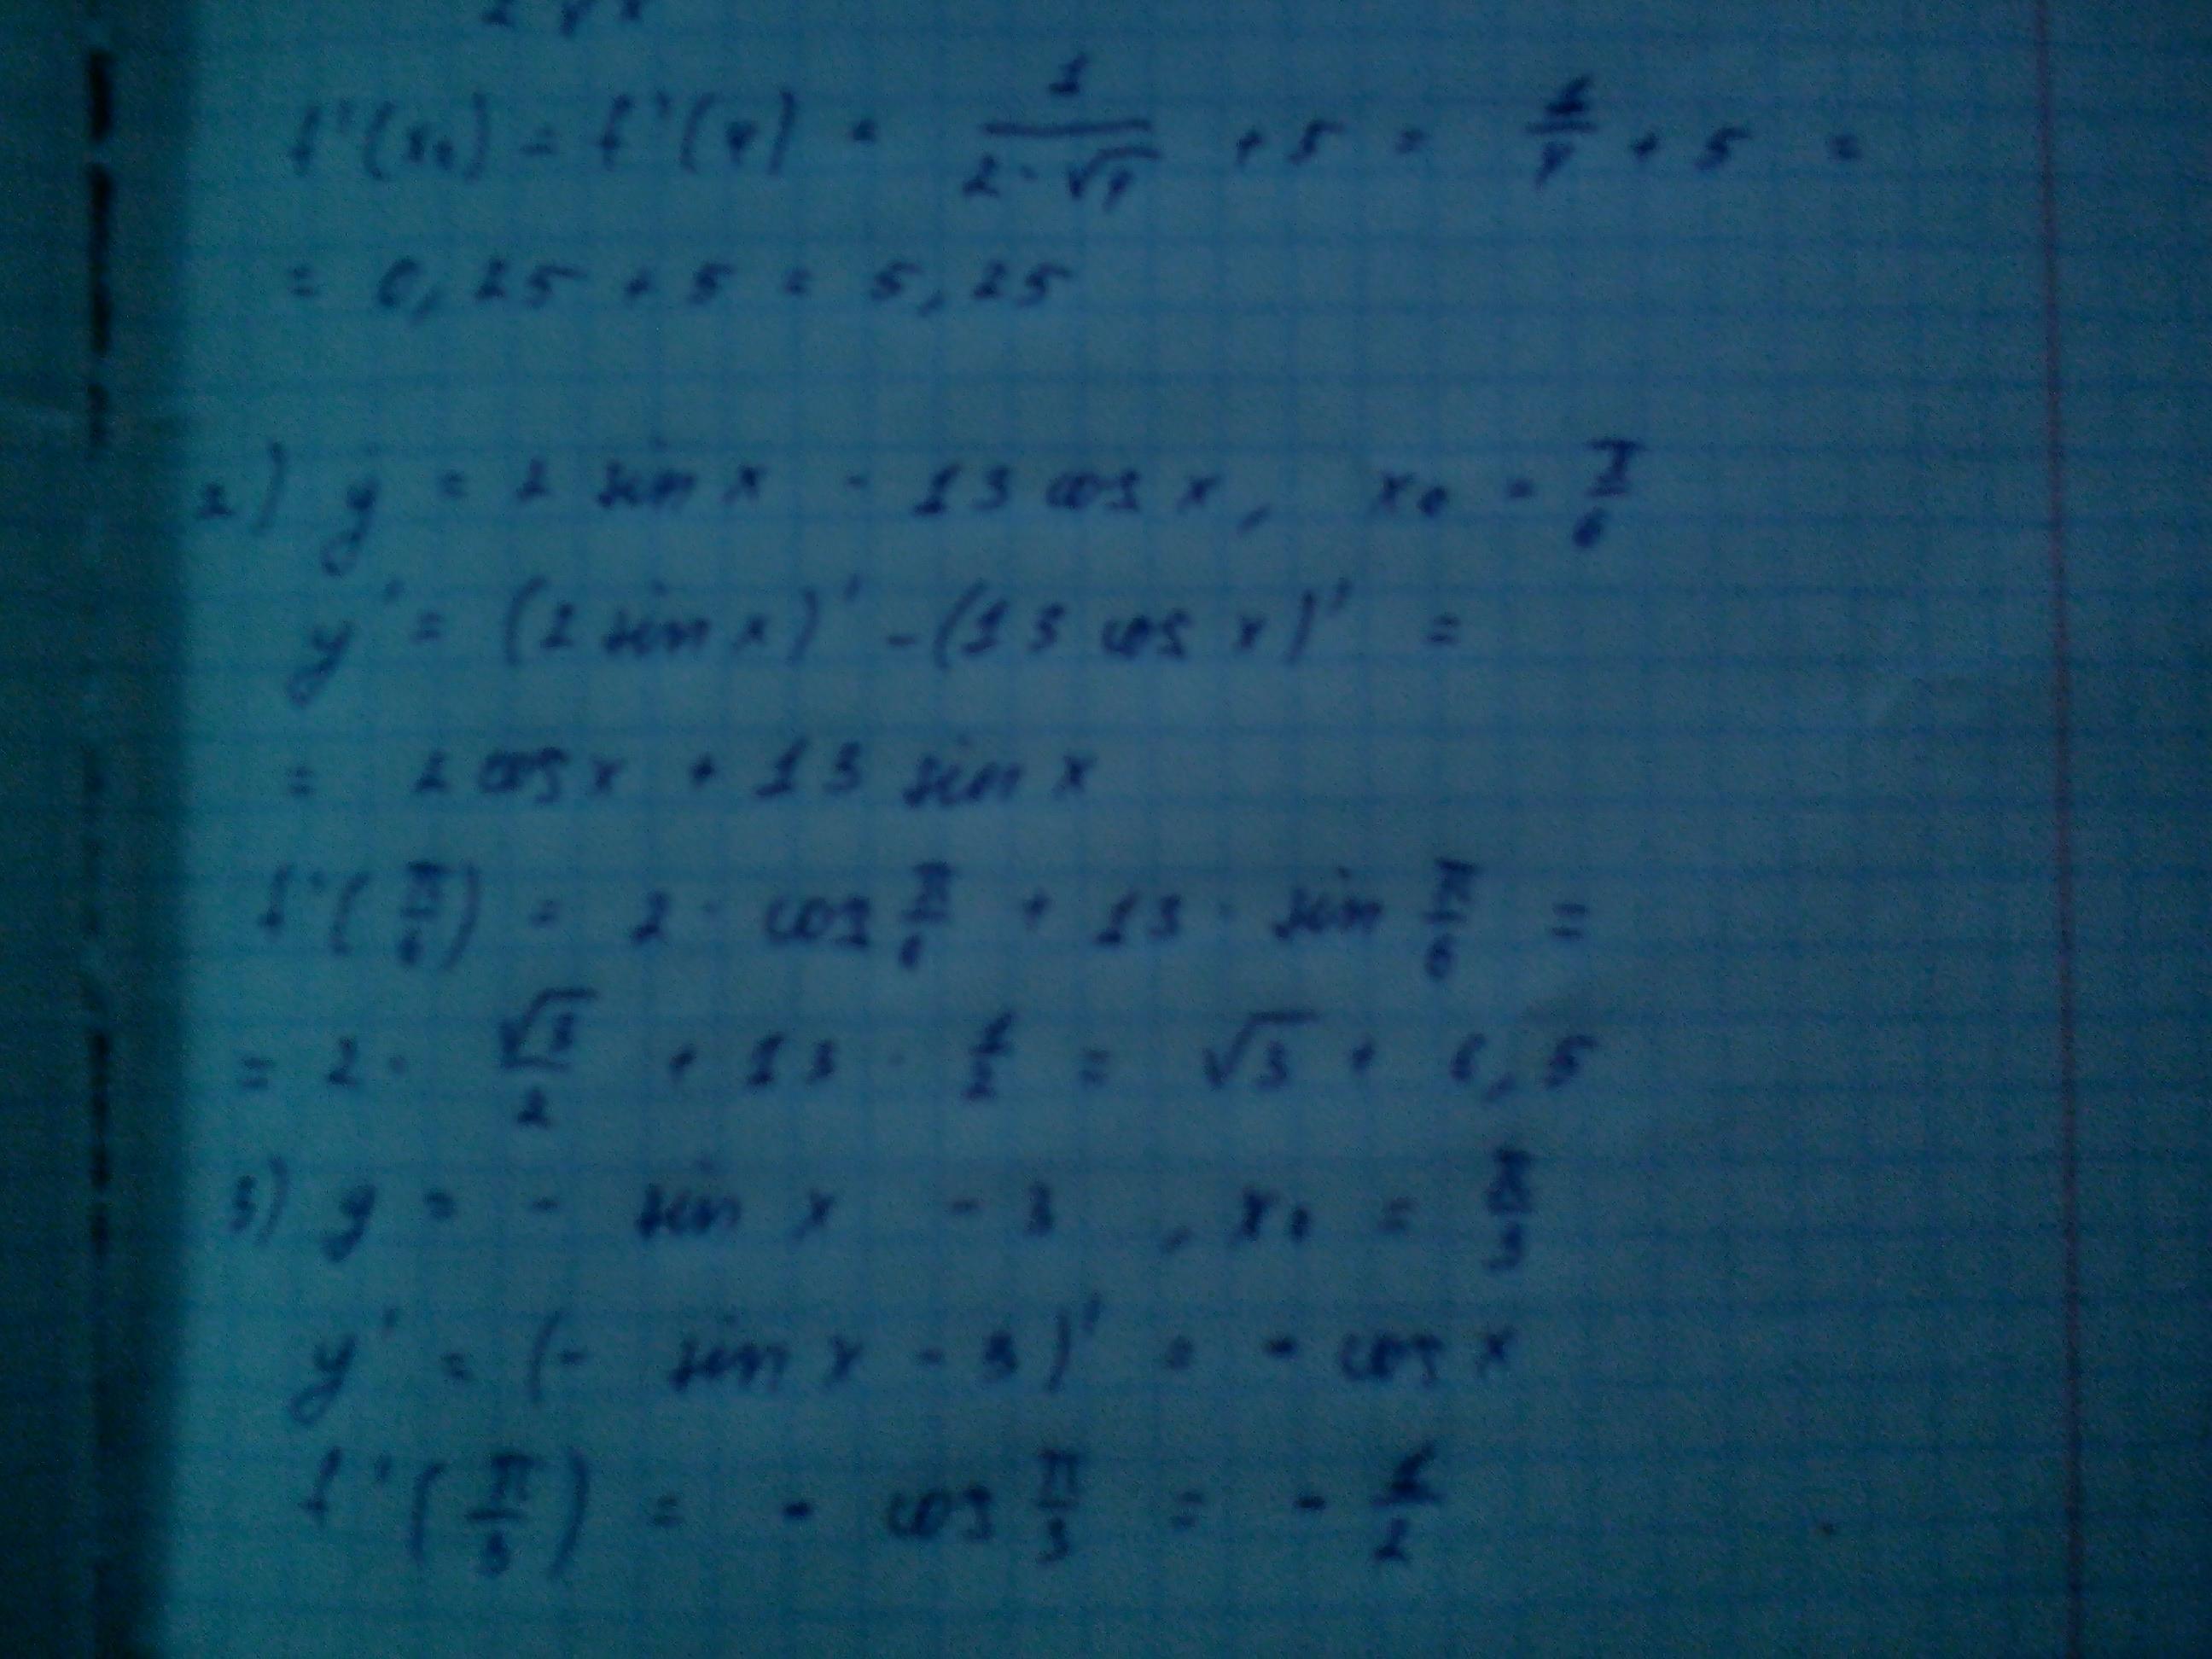 2√x
f'(x₀) = f'(4) = 1/(2·√4) + 5 = 1/4 + 5 =
= 0,25 + 5 = 5,25
2) y = 2 sin x - 13 cos x, x₀ = π/6
y' = (2 sin x)' - (13 cos x)' =
= 2 cos x + 13 sin x
f'(π/6) = 2 · cos π/6 + 13 · sin π/6 =
= 2 · √3/2 + 13 · 1/2 = √3 + 6,5
3) y = - sin x - 3, x₀ = π/3
y' = (- sin x - 3)' = - cos x
f'(π/3) = - cos π/3 = - 1/2